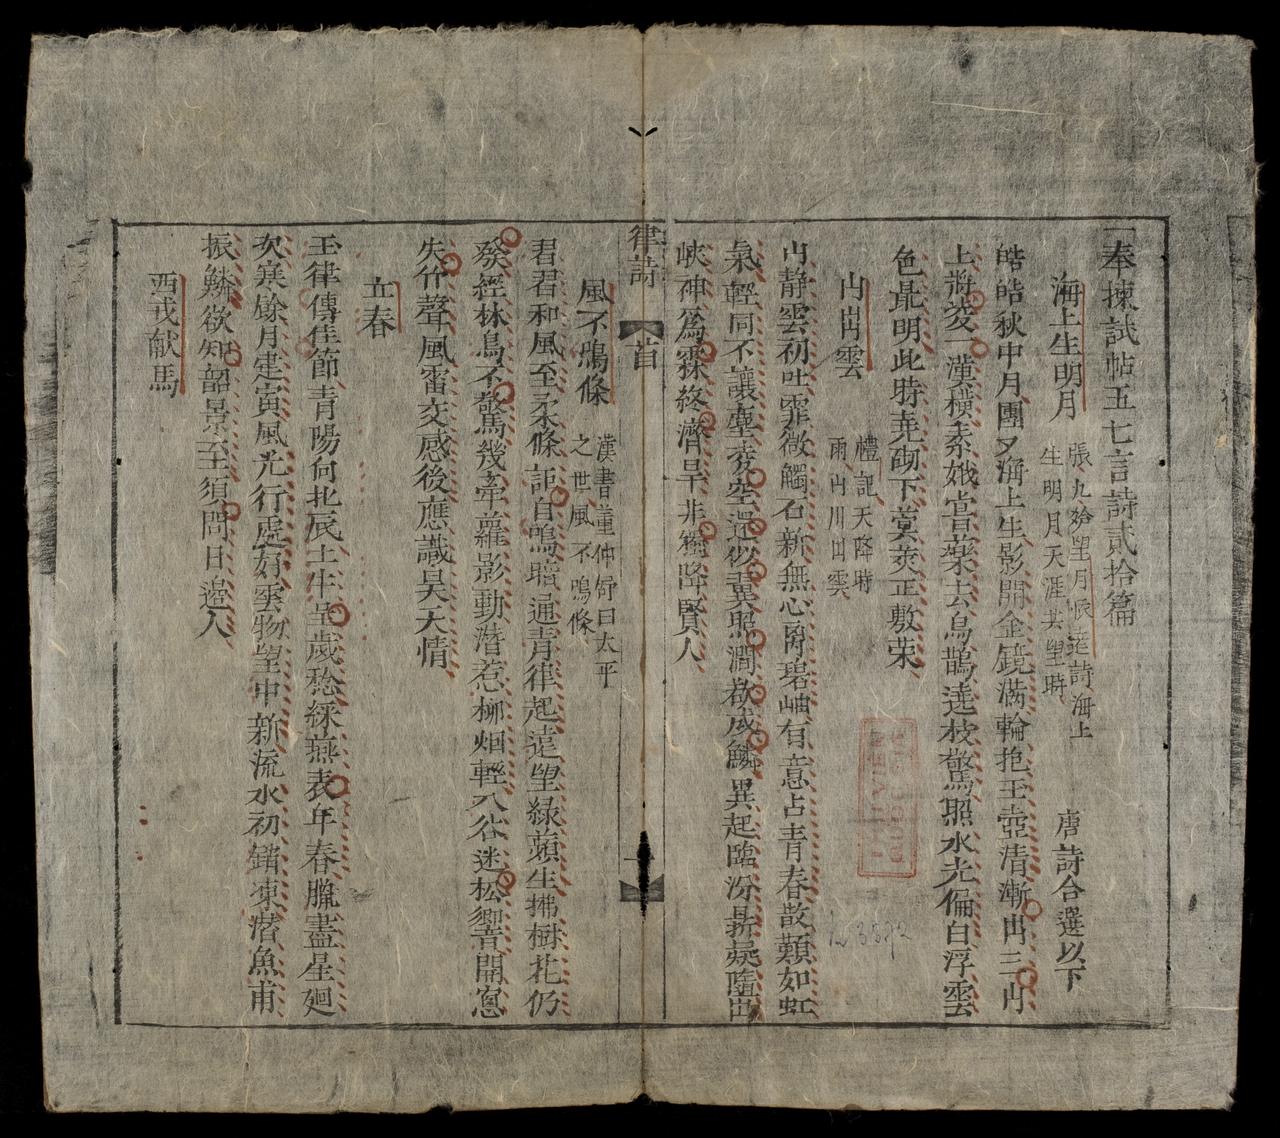 一奉揀試帖五七言詩貳拾篇
海上生明月 張九𬋩望月懷遠詩海上
生明月天涯共望時 唐詩合選以下
皓皓秋中月團又海上生影開金鏡滿輪抱玉壺清漸出三山
上將凌一漢橫素娥嘗藥去烏鵲遶枝驚照水光偏白浮雲
色最明此時堯砌下蓂莢正敷荣
山出雲 禮記天降時
雨山川出雲
山静雲初吐霏微觸石新無心离碧岫有意占青春散類如虹
氣輕同不讓塵麥空還似翼照澗欲成鱗異起臨汾鼎疑隨出
峽神爲霖終濟旱非獨降賢人
律詩 首
風不鳴條 漢書董仲舒曰太平
之世風不鳴條
習習和風至柔條詎自鳴暗通青律起遠望綠蘋生拂樹花仍
發經林鳥不驚幾牽蘿影動潜惹柳烟輕入谷迷松響開窓
失竹聲風雷交感後應識昊天情
立春
玉律傳佳節青陽向北辰土牛呈歲稔綵燕表年春臘盡星廻
次寒餘月建寅風光行處好雲物望中新流水初銷凍潜魚甫
振鱗欲知韶景至須問日邉人
西戎献馬